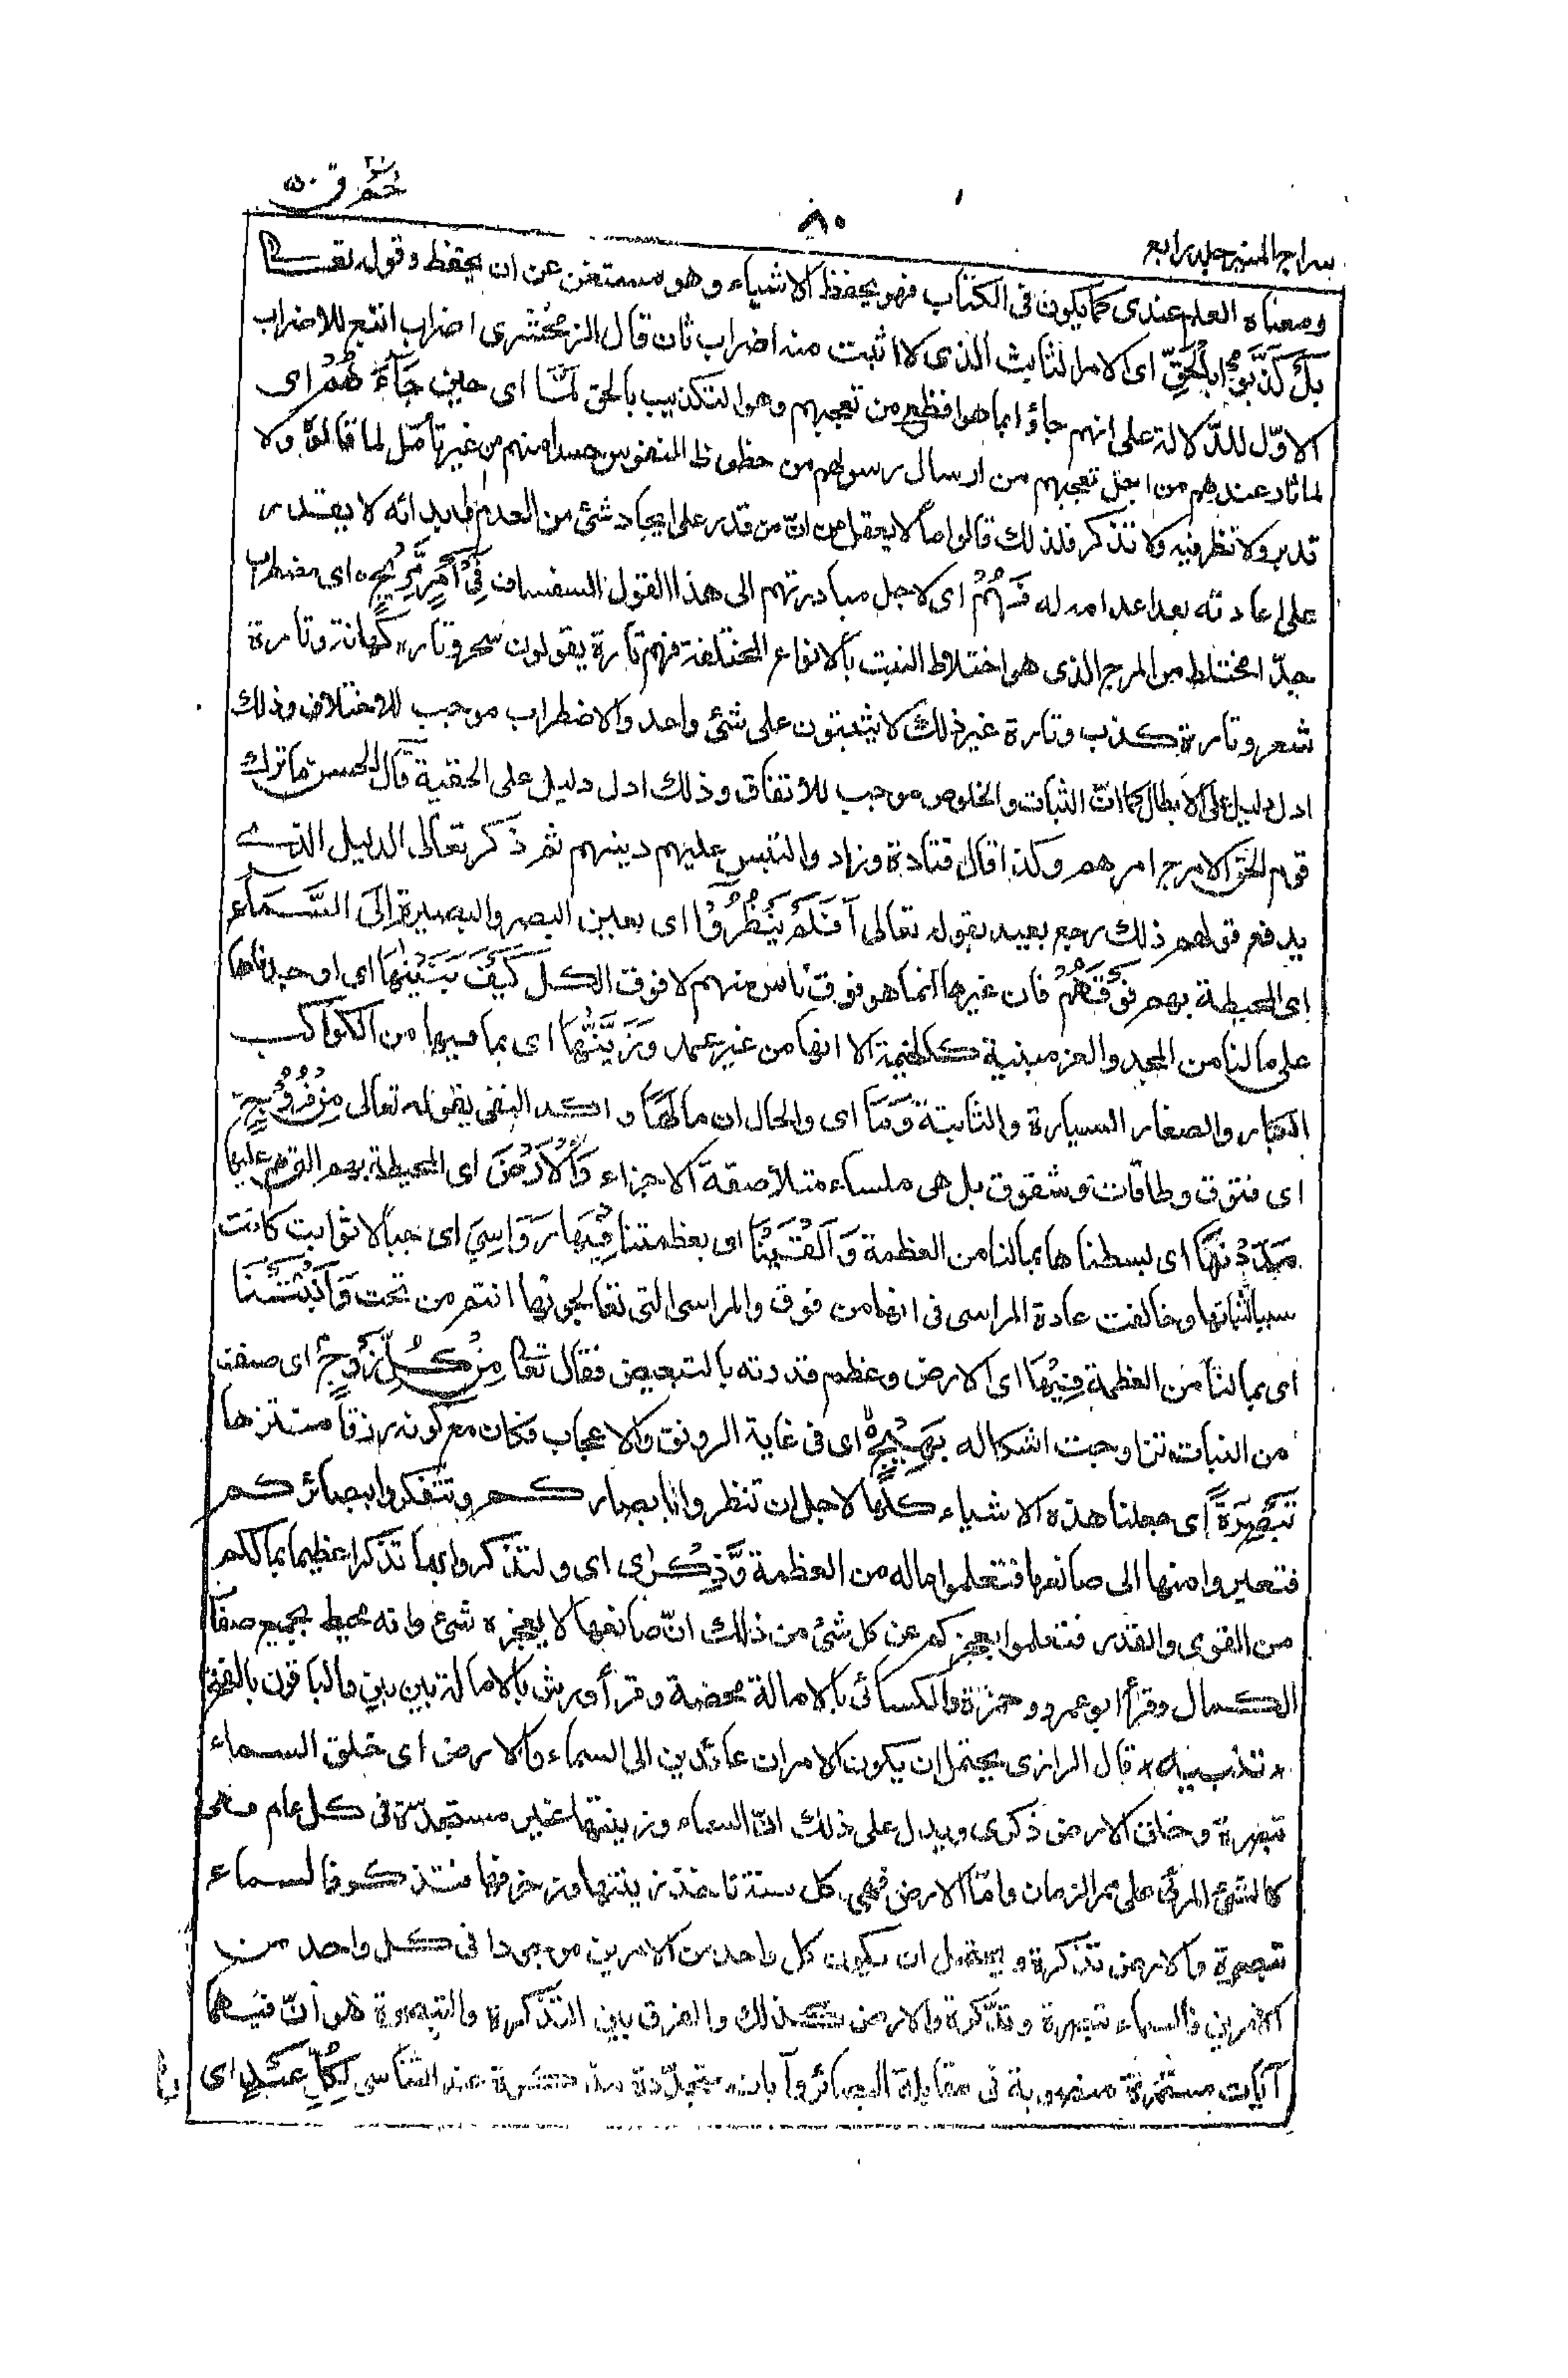 سراج المنیر جلد رابع
۸۰
حٰم ق ۵۰
ومعناه العلم عندی کما یکون فی الکتاب فهو یحفظ الاشیاء وهو مستغن عن ان یحفظ وقوله تعالی
بَلْ كَذَّبُوْا بِالْحَقِّ ای الامر الثابت الذی لا اثبت منه اضراب ثان قال الزمخشری اضراب اتبع للاضراب
الاوّل للدّلالة علی انهم جاؤا بما هو افظع من تعجبهم وهو التکذیب بالحق لَمَّا ای حین جَآءَهُمْ ای
لما ثار عندهم من اجل تعجبهم من ارسال رسولهم من حظوظ النفوس حسدا منهم من غیر تأمّل لما قالوه ولا
تدبر ولا نظر فیه ولا تذکر فلذلك قالوا ما لا یعقل من انّ من قدر علی ایجاد شئ من العدم وابدائه لا یقدر
علی اعادته بعد اعدامه له فَهُمْ ای لاجل مبادرتهم الی هذا القول السفساف فِيْٓ اَمْرٍ مَّرِيْجٍ ه ای مضطرب
جدّا مختلط من المرج الذی هو اختلاط النبت بالانواع المختلفة فهم تارة یقولون سحر وتارة کهانة وتارة
شعر وتارة کذب وتارة غیر ذلك لا یثبتون علی شئ واحد والاضطراب موجب للاختلاف وذلك
ادل دلیل علی الابطال کما انّ الثبات والخلوص موجب للاتفاق وذلك ادل دلیل علی الحقیة قال الحسن ما ترك
قوم الحق الا مرج امرهم وکذا قال قتادة وزاد والتبس علیهم دینهم ثم ذکر تعالی الدلیل الذی
یدفع قولهم ذلك رجع بعید بقوله تعالی اَفَلَمْ يَنْظُرُوْٓا ای بعین البصر والبصیرة اِلَى السَّمَآءِ
ای المحیطة بهم فَوْقَهُمْ فان غیرها انما هو فوق ناس منهم لا فوق الکل كَيْفَ بَنَيْنٰهَا ای اوجدناها
علی ما لنا من المجد والعز مبنیة کالخیمة الا انها من غیر عمد وَزَيَّنّٰهَا ای بما فیها من الکواکب
الکبار والصغار السیارة والثابتة وَمَا ای والحال ان ما لَهَا واکد النفی بقوله تعالی مِنْ فُرُوْجٍ
ای فتوق وطاقات وشقوق بل هی ملساء متلاصقة الاجزاء وَالْاَرْضَ ای المحیطة بهم التی هم علیها
مَدَدْنٰهَا ای بسطناها بما لنا من العظمة وَاَلْقَيْنَا ای بعظمتنا فِيْهَا رَوَاسِيَ ای جبالا ثوابت کانت
سببا لثباتها وخالفت عادة المراسی فی انها من فوق والمراسی التی تعالجونها انتم من تحت وَاَنْۢبَتْنَا
ای بما لنا من العظمة فِيْهَا ای الارض وعظم قدرته بالتبعیض فقال تعالی مِنْ كُلِّ زَوْجٍ ای صنف
من النبات تزاوجت اشکاله بَهِيْجٍ ه ای فی غایة الرونق والاعجاب فکان مع کونه رزقا متنزها
تَبْصِرَةً ای جعلنا هذه الاشیاء کلّها لاجل ان تنظروا بابصارکم وتتفکروا ببصائرکم
فتعبروا منها الی صانعها فتعلموا ماله من العظمة وَّذِكْرٰى ای ولتذکروا بها تذکرا عظیما بما لکم
من القوی والقدر فتعلموا بعجزکم عن کل شئ من ذلك انّ صانعها لا یعجزه شئ وانه محیط بجمیع صفات
الکمال وقرأ ابو عمرو وحمزة والکسائی بالامالة محضة وقرأ ورش بالامالة بین بین والباقون بالفتح
* تنبیه * قال الرازی یحتمل ان یکون الامران عائدین الی السماء والارض ای خلق السماء
تبصرة وخلق الارض ذکری ویدل علی ذلك انّ السماء وزینتها غیر مستجدّة فی کل عام فهی
کالشئ المرئی علی ممر الزمان وامّا الارض فهی کل سنة تاخذ زینتها وزخرفها فتذکر فالسماء
تبصرة والارض تذکرة ویحتمل ان یکون کل واحد من الامرین موجودا فی کل واحد من
الامرین فالسماء تبصرة وتذکرة والارض کذلك والفرق بین التذکرة والتبصرة هو انّ فیهما
آیات مستمرّة منصوبة فی مقابلة البصائر وآیات متجدّدة مذکرة عند التناسی لِكُلِّ عَبْدٍ ای